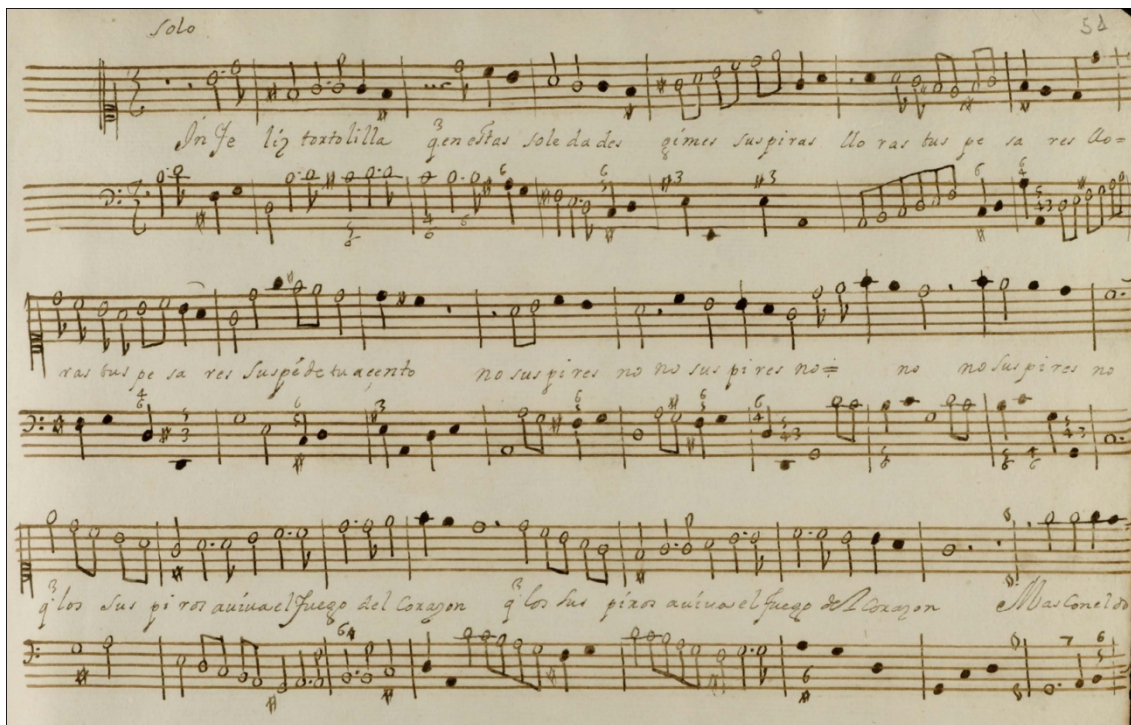 Solo 51
Infeliz tortolilla q.en estas soledades gimes suspiras lloras tus pesares llo=
ras tus pesares Suspẽde tu açento no suspires no no suspires no= no no suspires no
q̃ los suspiros auiua el fuego del Corazon q̃ los suspiros auiua el fuego del Corazon Mas Con el do